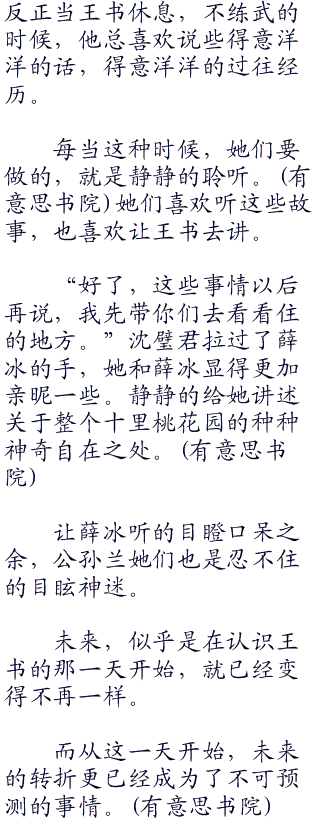 反正当王书休息，不练武的
时候，他总喜欢说些得意洋
洋的话，得意洋洋的过往经
历。
每当这种时候，她们要
做的，就是静静的聆听。(有
意思书院)她们喜欢听这些故
事，也喜欢让王书去讲。
“好了，这些事情以后
再说，我先带你们去看看住
的地方。”沈璧君拉过了薛
冰的手，她和薛冰显得更加
亲昵一些。静静的给她讲述
关于整个十里桃花园的种种
神奇自在之处。(有意思书
院)
让薛冰听的目瞪口呆之
余，公孙兰她们也是忍不住
的目眩神迷。
未来，似乎是在认识王
书的那一天开始，就已经变
得不再一样。
而从这一天开始，未来
的转折更已经成为了不可预
测的事情。(有意思书院)